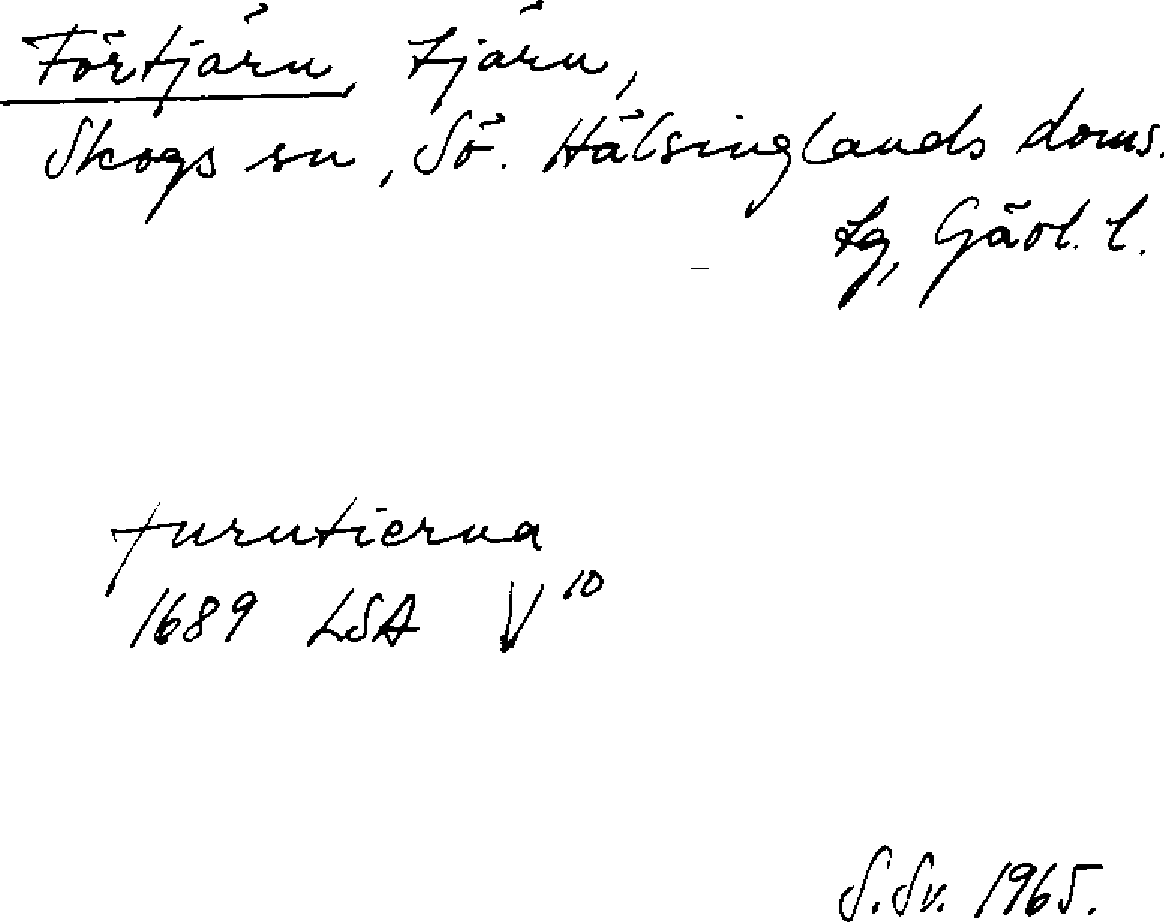 Förtjärn, tjärn,
Skogs sn, Sö. Hälsinglands doms.
lg, Gävl. l.
furutierna
1689 LSA V¹⁰
S.Sv. 1965.